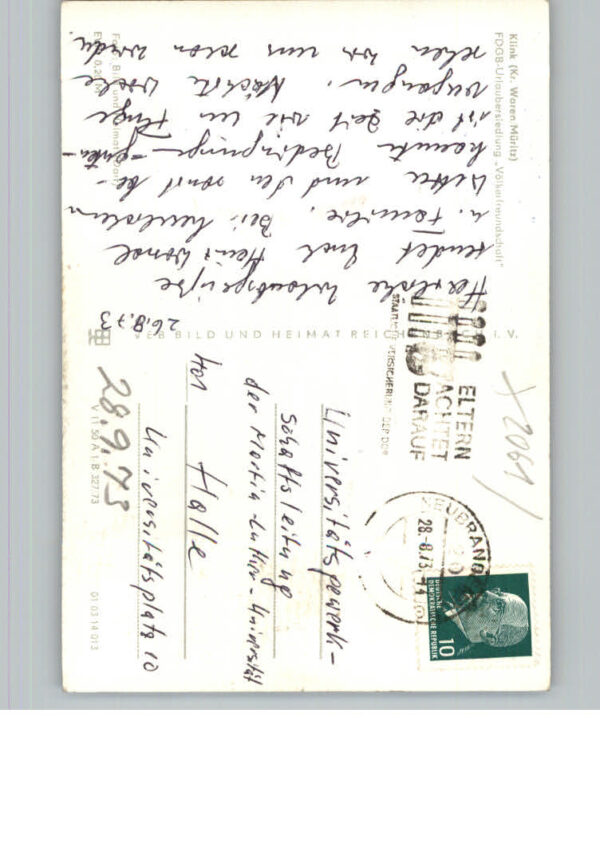 Klink (Kr. Waren Müritz)
FDGB-Urlaubersiedlung „Völkerfreundschaft"
26.8.73
Herzliche Urlaubsgrüße
sendet Euch
u. Familie. Bei
Wetter und den sonst be-
kannten Bedingungen
ist die Zeit wie im Fluge
vergangen. Nächste Woche
sehen wir uns schon wieder.
VEB BILD UND HEIMAT REICHENBACH i. V.
STAATLICHE VERSICHERUNG DER DDR
ELTERN
ACHTET
DARAUF
NEUBRANDENBURG
28.-8.73
DEUTSCHE
DEMOKRATISCHE REPUBLIK
10
X 2061
Universitätsgewerk-
schaftsleitung
der Martin-Luther-Universität
401 Halle
Universitätsplatz 10
28.9.73
V 11 50 A 1 B 327/73
01 03 14 013